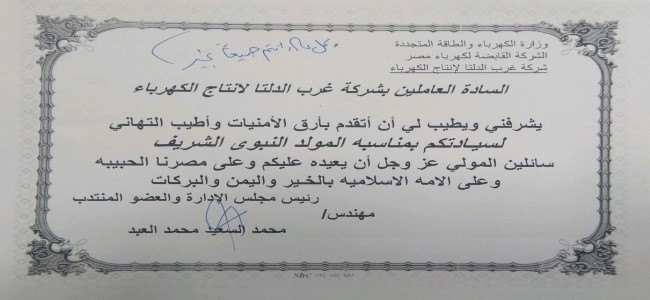 وزارة الكهرباء والطاقة المتجددة
الشركة القابضة لكهرباء مصر
شركة غرب الدلتا لانتاج الكهرباء
وكل عام وانتم جميعاً بخير
السادة العاملين بشركة غرب الدلتا لانتاج الكهرباء
يشرفني ويطيب لي أن أتقدم بأرق الأمنيات وأطيب التهاني
لسيادتكم بمناسبه المولد النبوى الشريف
سائلين المولي عز وجل أن يعيده عليكم وعلى مصرنا الحبيبه
وعلى الامه الاسلاميه بالخير واليمن والبركات
رئيس مجلس الإدارة والعضو المنتدب
مهندس/
محمد السعيد محمد العبد